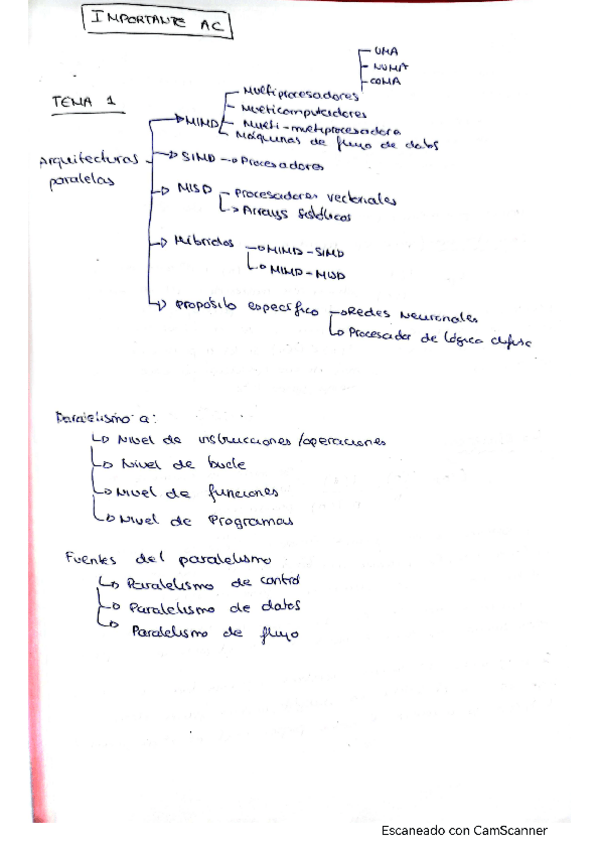 IMPORTANTE AC
UMA
NUMA
COMA
TEMA 1
Multiprocesadores
Multicomputadores
MIMD
Multi-multiprocesadora
Máquinas de flujo de datos
Arquitecturas paralelas
SIMD → Procesadores
MISD
Procesadores vectoriales
Arrays Sistólicos
Híbridos
MIMD-SIMD
MIMD-MISD
Propósito específico
Redes Neuronales
Procesador de lógica difusa
Paralelismo a:
Nivel de instrucciones/operaciones
Nivel de bucle
Nivel de funciones
Nivel de Programas
Fuentes del paralelismo
Paralelismo de control
Paralelismo de datos
Paralelismo de flujo
Escaneado con CamScanner